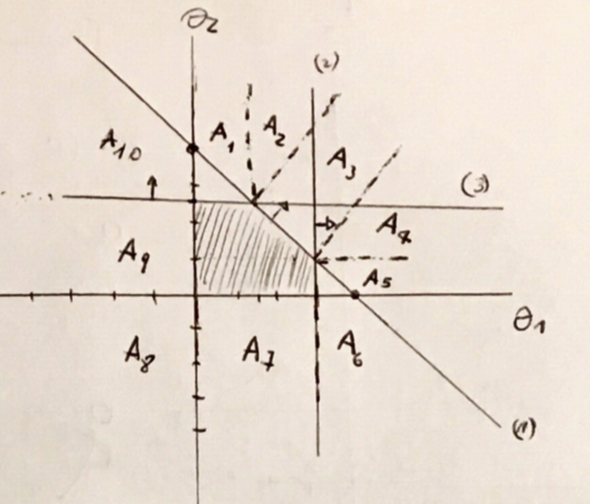 θ₂
(2)
A₁₀ A₁ A₂
A₃
(3)
A₄
A₉
A₅
θ₁
A₈ A₇ A₆
(1)